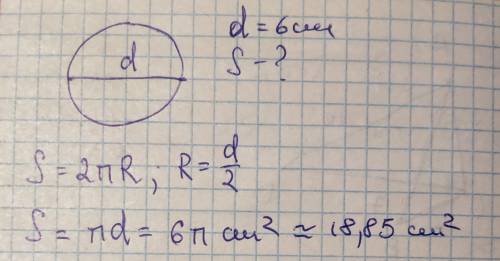 d
d = 6 см
S - ?
S = 2πR; R = d/2
S = πd = 6π см² ≈ 18,85 см²